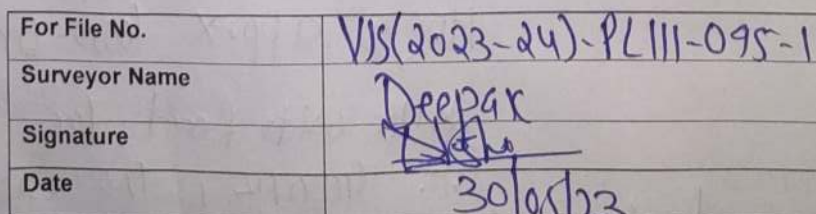 For File No. VIS(2023-24)-PL111-095-1
Surveyor Name Deepak
Signature
Date 30/05/23